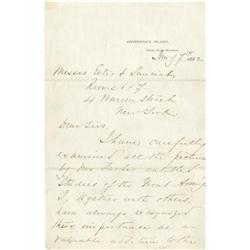 GOVERNOR'S ISLAND,
New York Harbor.
May 7th 1882
Messrs Estes & Lauriat,
Rooms 6 & 7
4 Warren Street
New York
Dear Sirs,
I have carefully
examined all the pictures
by Mr Forbes entitled
Studies of the Great Army
I, together with others,
have always recognized
their importance as a
valuable addition to the